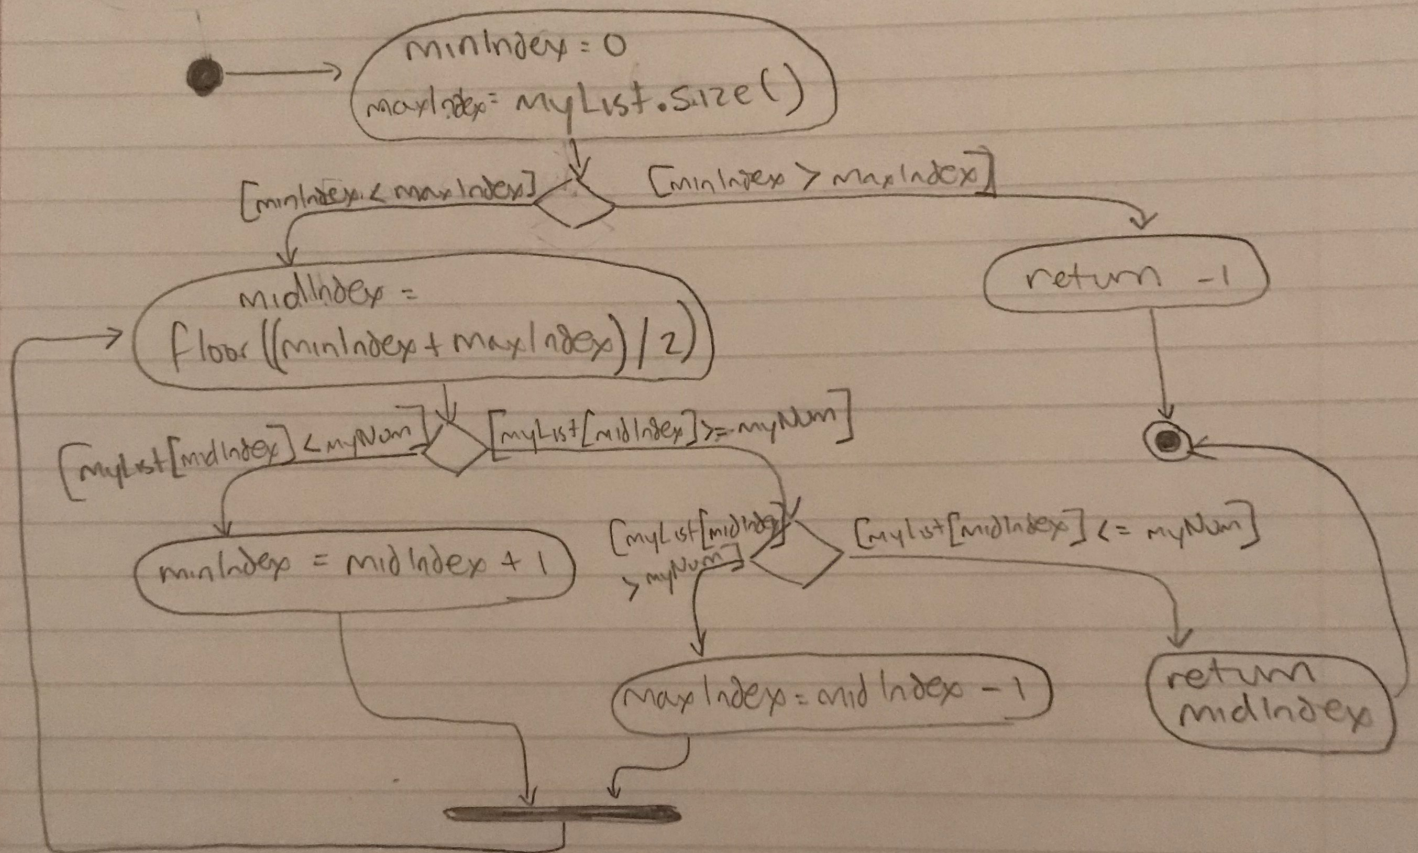 minIndex = 0
maxIndex = myList.size()
[minIndex < maxIndex]
[minIndex > maxIndex]
midIndex =
floor((minIndex + maxIndex) / 2)
return -1
[myList[midIndex] < myNum]
[myList[midIndex] >= myNum]
minIndex = midIndex + 1
[myList[midIndex]
> myNum]
[myList[midIndex] <= myNum]
maxIndex = midIndex - 1
return
midIndex